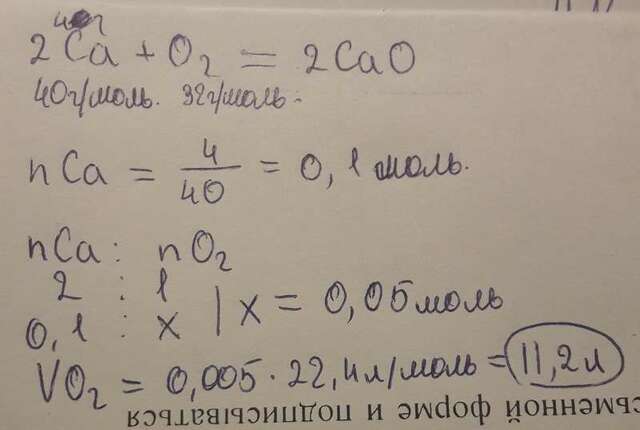 4г
2Ca + O₂ = 2CaO
40г/моль. 32г/моль.
nCa = 4/40 = 0,1 моль.
nCa : nO₂
2 : 1
0,1 : x | x = 0,05 моль
VO₂ = 0,005 · 22,4 л/моль = 11,2 л
сьменной форме и подписываться